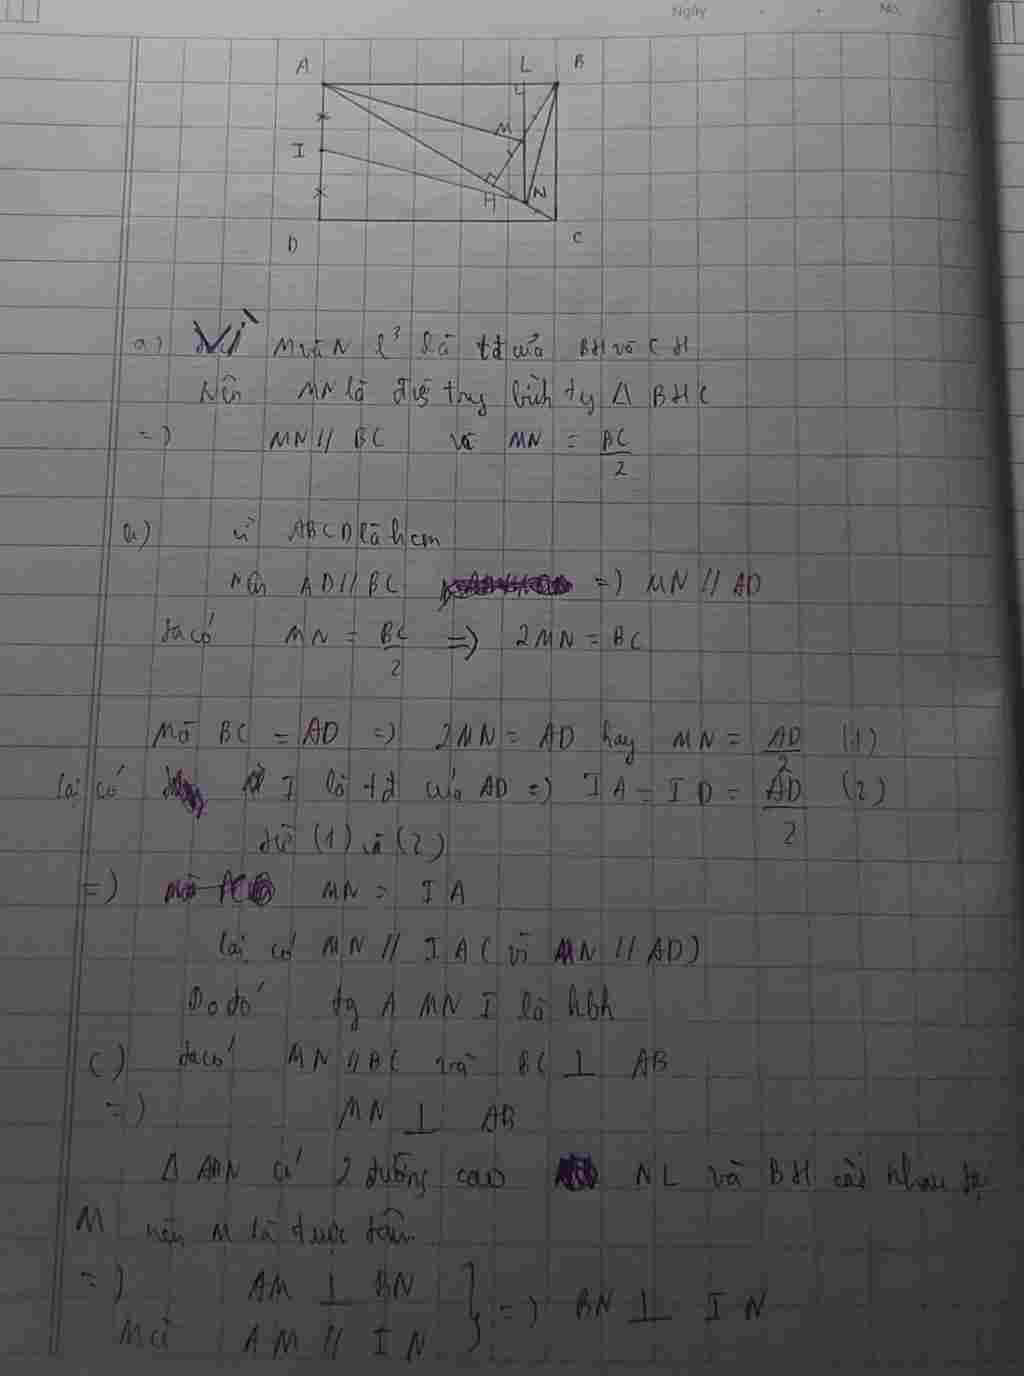 Ngày No.
A L B
M
I
H N
D C
a) Vì M và N l³ là tđ của BH và CH
Nên MN là đg trug bình tg Δ BHC
=) MN // BC và MN = BC/2
b) vì ABCD là hcn
nên AD // BC =) MN // AD
ta có MN = BC/2 =) 2MN = BC
Mà BC = AD =) 2MN = AD hay MN = AD/2 (1)
lại có I là tđ của AD =) IA = ID = AD/2 (2)
từ (1) và (2)
=) MN = IA
lại có MN // IA (vì MN // AD)
Do đó tg AMNI là hbh
c) ta có MN // BC mà BC ⊥ AB
=) MN ⊥ AB
Δ ABN có 2 đường cao NL và BH cắt nhau tại
M nên M là trực tâm
=) AM ⊥ BN
Mà AM // IN } =) BN ⊥ IN